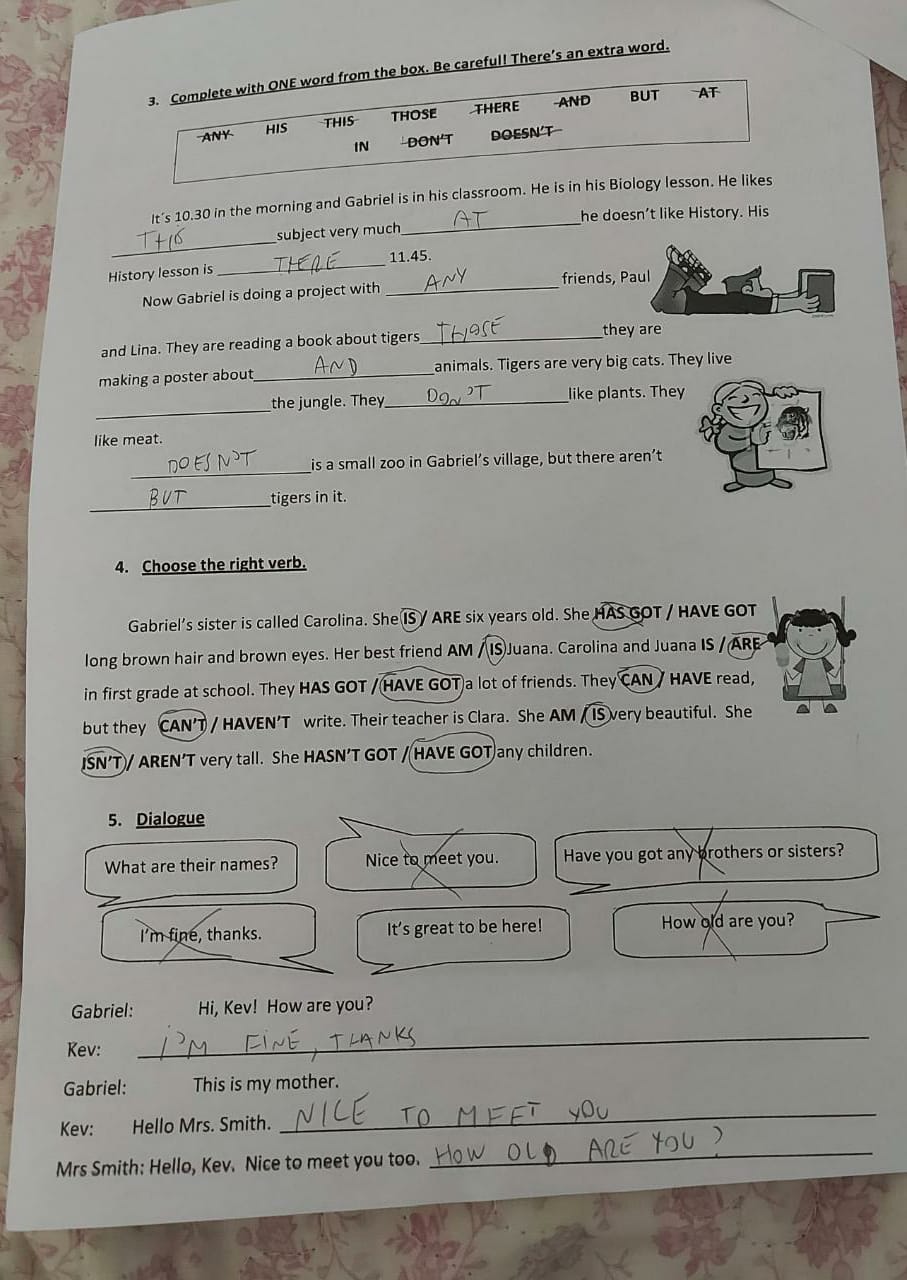 3. Complete with ONE word from the box. Be careful! There's an extra word.
ANY HIS THIS THOSE THERE AND BUT AT
IN DON'T DOESN'T
It´s 10.30 in the morning and Gabriel is in his classroom. He is in his Biology lesson. He likes
THIS subject very much AT he doesn't like History. His
History lesson is THERE 11.45.
Now Gabriel is doing a project with ANY friends, Paul
and Lina. They are reading a book about tigers THOSE they are
making a poster about AND animals. Tigers are very big cats. They live
the jungle. They DON'T like plants. They
like meat.
DOESN'T is a small zoo in Gabriel's village, but there aren't
BUT tigers in it.
4. Choose the right verb.
Gabriel's sister is called Carolina. She IS / ARE six years old. She HAS GOT / HAVE GOT
long brown hair and brown eyes. Her best friend AM / IS Juana. Carolina and Juana IS / ARE
in first grade at school. They HAS GOT / HAVE GOT a lot of friends. They CAN / HAVE read,
but they CAN'T / HAVEN'T write. Their teacher is Clara. She AM / IS very beautiful. She
ISN'T / AREN'T very tall. She HASN'T GOT / HAVE GOT any children.
5. Dialogue
What are their names? Nice to meet you. Have you got any brothers or sisters?
I'm fine, thanks. It's great to be here! How old are you?
Gabriel: Hi, Kev! How are you?
Kev: I'M FINE, TLANKS
Gabriel: This is my mother.
Kev: Hello Mrs. Smith. NICE TO MEET YOU
Mrs Smith: Hello, Kev. Nice to meet you too. HOW OLD ARE YOU?